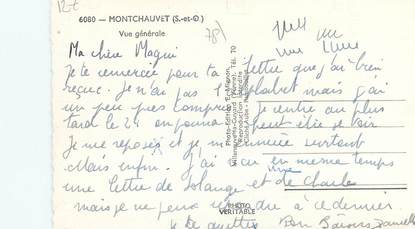 12-t
6080 – MONTCHAUVET (S.-et-O.)
Vue générale
78)
Ma chère Magui
Je te remercie pour ta lettre que j'ai bien
reçue. Je n'ai pas l' mais j'ai
un peu pas compris. Je rentre au plus
tard le 25 on pourra peut être se voir
Je me repose et je m'ennuie surtout
Mais enfin. J'ai eu en même temps
une lettre de Solange et une de Charles
mais je ne peux répondre à ce dernier
Je te quitte Bons Baisers Danielle
Photo-Edition E. Mignon,
Villeneuve-la-Guyard (Yonne). Tél. 70
Reproduction interdite
PHOTO VÉRITABLE